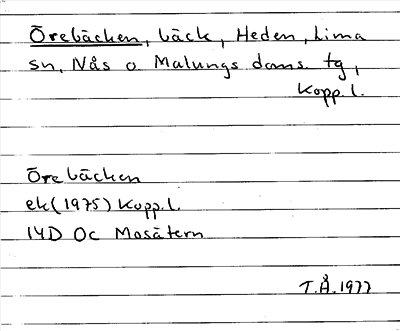 Örebäcken, bäck, Heden, Lima
sn, Nås o Malungs doms. tg,
Kopp.l.
Örebäcken
ek (1975) Kopp.l.
14D Oc Mosätern
T.Å.1977